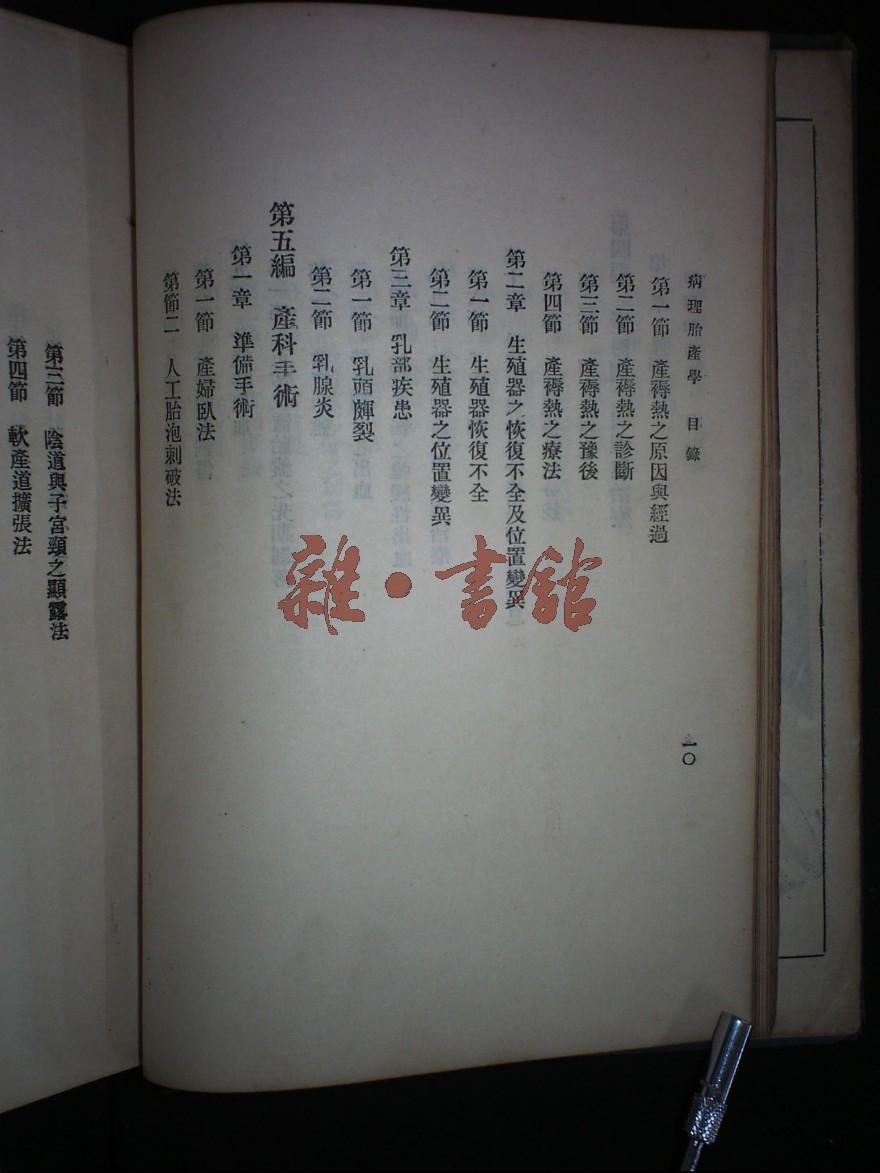 病理胎產學 目錄
一〇
第一節 產褥熱之原因與經過
第二節 產褥熱之診斷
第三節 產褥熱之豫後
第四節 產褥熱之療法
第二章 生殖器之恢復不全及位置變異
第一節 生殖器恢復不全
第二節 生殖器之位置變異
第三章 乳部疾患
第一節 乳頭皹裂
第二節 乳腺炎
第五編 產科手術
第一章 準備手術
第一節 產婦臥法
第節二 人工胎泡刺破法
第三節 陰道與子宮頸之顯露法
第四節 軟產道擴張法
雜·書館